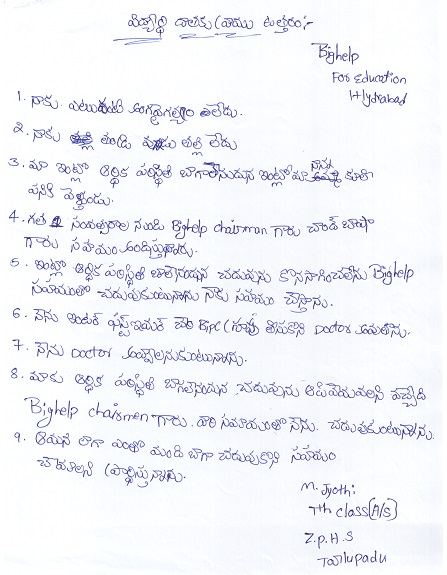 విద్యార్థి దాతకు వ్రాయు ఉత్తరం:-
Bighelp
For Education
Hyderabad
1. నాకు ఎటువంటి అంగవైగల్యం లేదు.
2. నాకు తండ్రి తల్లి లేదు
3. మా ఇంట్లో ఆర్థిక పరిస్థితి బాగాలేనందున ఇంట్లో మా నాన్న కూలి
పనికి వెళ్తాడు.
4. గత 2 సంవత్సరాల నుండి Bighelp chairman గారు చాంద్ బాషా
గారు సహాయం అందిస్తున్నారు.
5. ఇంట్లో ఆర్థిక పరిస్థితి బాలేనందున చదువును కొనసాగించలేను Bighelp
సహాయంతో చదువుకుంటున్నాను నాకు సహాయం చేస్తారు.
6. నేను ఇంటర్ ఫస్ట్ ఇయర్ చేరి Bipc గ్రూపు తీసుకొని Doctor అవుతాను.
7. నేను Doctor అవ్వాలనుకుంటున్నాను.
8. మాకు ఆర్థిక పరిస్థితి బాగలేనందున చదువును ఆపివేయవలసి వచ్చేది
Bighelp chairmen గారు. వారి సహాయంతో నేను చదువుకుంటున్నాను.
9. ఆయన లాగా ఎంతో మంది బాగా చదువుకొని సహాయం
చేయాలని ప్రార్థిస్తున్నాను.
M. Jyothi
7th class (A/S)
Z.P.H.S
Tallupadu